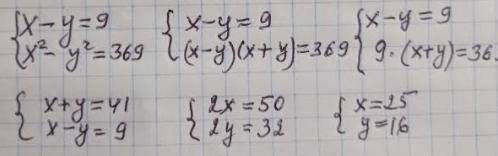 { x - y = 9
x² - y² = 369
{ x - y = 9
(x-y)(x+y) = 369
{ x - y = 9
9 · (x+y) = 36
{ x + y = 41
x - y = 9
{ 2x = 50
2y = 32
{ x = 25
y = 16